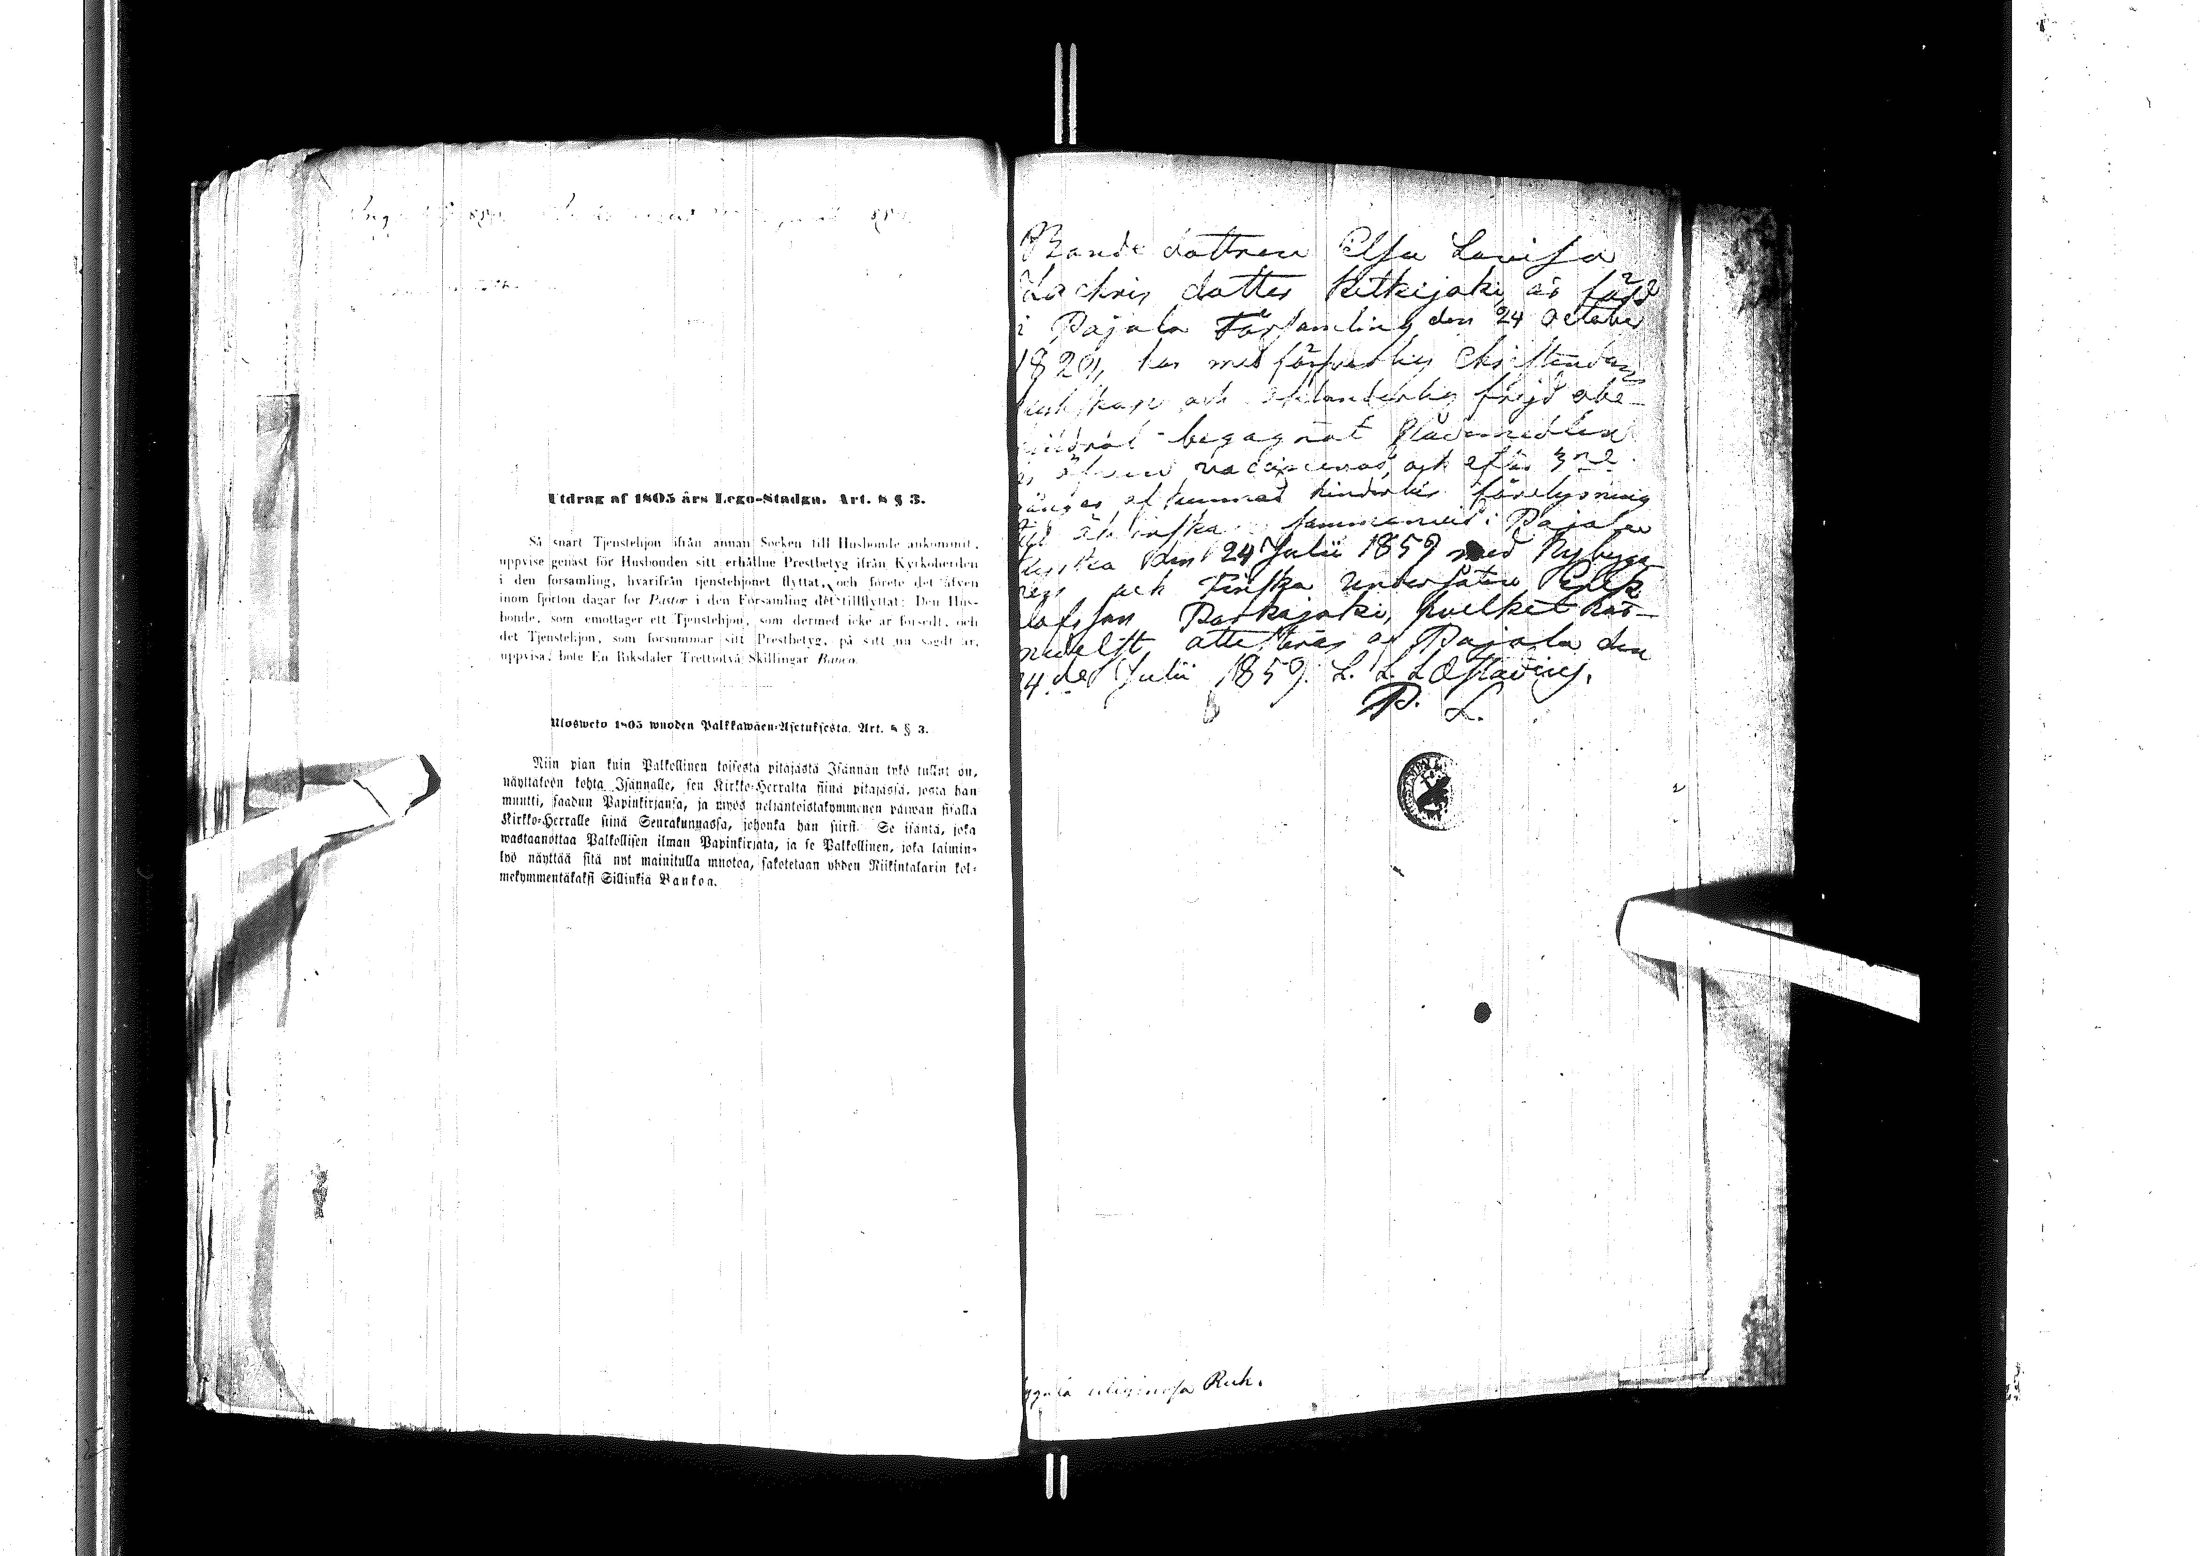 Utdrag af 1805 års Lego-Stadga. Art. 8 § 3.
Så snart Tjenstehjon ifrån annan Socken till Husbonde ankommit,
uppvise genast för Husbonden sitt erhållne Prestbetyg ifrån Kyrkoherden
i den församling, hvarifrån tjenstehjonet flyttat, och förete det äfven
inom fjorton dagar för Pastor i den Församling det tillflyttat: Den Hus-
bonde, som emottager ett Tjenstehjon, som dermed icke är försedt, och
det Tjenstehjon, som försummar sitt Prestbetyg, på sätt nu sagdt är,
uppvisa, böte En Riksdaler Trettiotvå Skillingar Banco.
Ulosweto 1805 wuoden Palkkawäen-Asetuksesta. Art. 8 § 3.
Niin pian kuin Palkollinen toisesta pitäjästä Isännän tykö tullut on,
näyttäköön kohta Isännälle, sen Kirkko-Herralta siinä pitäjässä, josta hän
muutti, saadun Papinkirjansa, ja myös neljäntoistakymmenen päiwän sisällä
Kirkko-Herralle siinä Seurakunnassa, johonka hän siirsi. Se isäntä, joka
wastaanottaa Palkollisen ilman Papinkirjata, ja se Palkollinen, joka laimin-
lyö näyttää sitä nyt mainitulla muotoa, sakotetaan yhden Riikintalarin kol-
mekymmentäkaksi Sillinkiä Bankoa.
Bonde dottren Elsa Lovisa
Zachris dotter Kitkijoki, är född
i Pajala Församling den 24 October
1829, har med försvarlig Christendoms
kunskap och oklanderlig frejd obe-
hindrat begagnat Nådemedlen
är äfven vaccinerad, och efter 3ne
gånger afkunnad hinderlös förelysning
till äktenskap sammanvid i Pajala
kyrka den 24 Julii 1859 med Nybygga
ren och Finska undersåten Erik
Olofsson Parkajoki, hvilket här-
medelst attesteras af Pajala den
24de Julii 1859. L. L. Læstadius.
P. L.
Ruh.